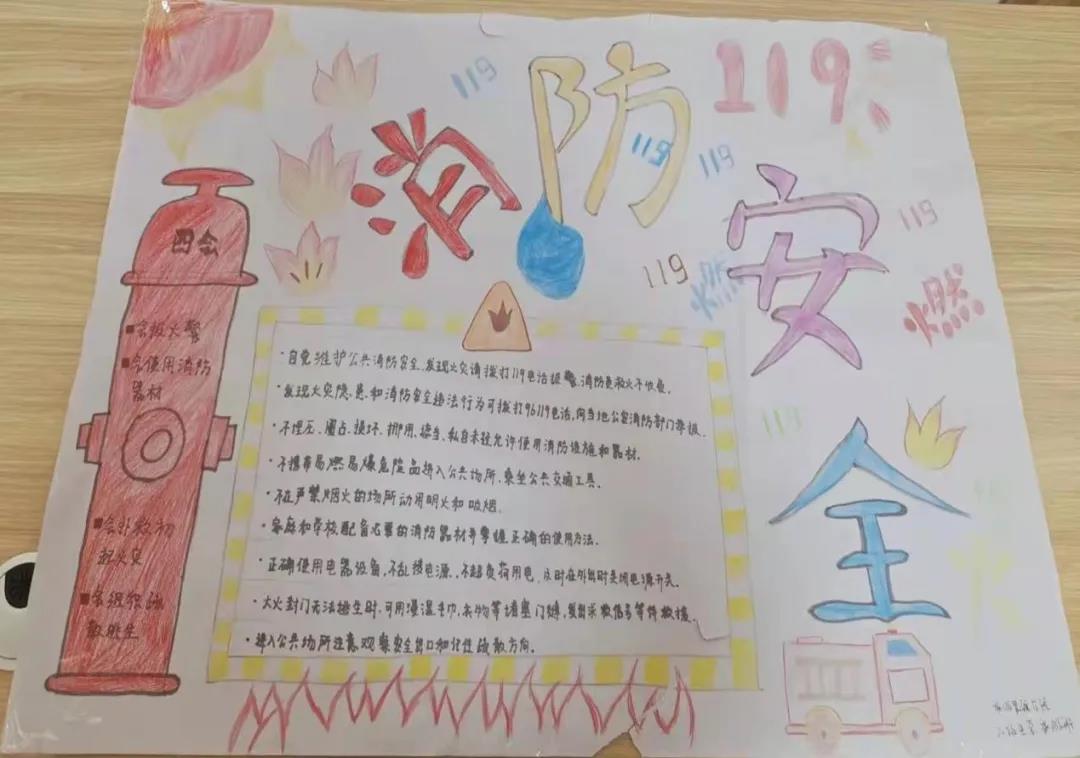 消防安全
119
119
119
119
119
119
119
燃
燃
四会
■会报火警
■会使用消防
器材
■会扑救初
起火灾
■会组织疏
散逃生
·自觉维护公共消防安全,发现火灾请拨打119电话报警,消防队救火不收费.
·发现火灾隐患和消防安全违法行为可拨打96119电话,向当地公安消防部门举报.
·不埋压、圈占、损坏、挪用、遮挡、私自未经允许使用消防设施和器材.
·不携带易燃易爆危险品进入公共场所、乘坐公共交通工具.
·不在严禁烟火的场所动用明火和吸烟.
·家庭和学校配备必要的消防器材并掌握正确的使用方法.
·正确使用电器设备,不乱接电源,不超负荷用电,及时在外出时关闭电源开关.
·大火封门无法逃生时,可用浸湿毛巾,衣物等堵塞门缝,发出求救信号等待救援.
·进入公共场所注意观察安全出口和记住疏散方向.